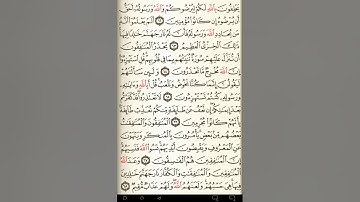 يَحْلِفُونَ بِاللَّهِ لَكُمْ لِيُرْضُوكُمْ وَاللَّهُ وَرَسُولُهُ أَحَقُّ
أَن يُرْضُوهُ إِن كَانُوا مُؤْمِنِينَ ٦٢ أَلَمْ يَعْلَمُوا أَنَّهُ
مَن يُحَادِدِ اللَّهَ وَرَسُولَهُ فَأَنَّ لَهُ نَارَ جَهَنَّمَ خَالِدًا فِيهَا
ذَٰلِكَ الْخِزْيُ الْعَظِيمُ ٦٣ يَحْذَرُ الْمُنَافِقُونَ
أَن تُنَزَّلَ عَلَيْهِمْ سُورَةٌ تُنَبِّئُهُم بِمَا فِي قُلُوبِهِمْ قُلِ اسْتَهْزِئُوا
إِنَّ اللَّهَ مُخْرِجٌ مَّا تَحْذَرُونَ ٦٤ وَلَئِن سَأَلْتَهُمْ
لَيَقُولُنَّ إِنَّمَا كُنَّا نَخُوضُ وَنَلْعَبُ قُلْ أَبِاللَّهِ وَآيَاتِهِ
وَرَسُولِهِ كُنتُمْ تَسْتَهْزِئُونَ ٦٥ لَا تَعْتَذِرُوا قَدْ كَفَرْتُم
بَعْدَ إِيمَانِكُمْ إِن نَّعْفُ عَن طَائِفَةٍ مِّنكُمْ نُعَذِّبْ طَائِفَةً
بِأَنَّهُمْ كَانُوا مُجْرِمِينَ ٦٦ الْمُنَافِقُونَ وَالْمُنَافِقَاتُ
بَعْضُهُم مِّن بَعْضٍ يَأْمُرُونَ بِالْمُنكَرِ وَيَنْهَوْنَ
عَنِ الْمَعْرُوفِ وَيَقْبِضُونَ أَيْدِيَهُمْ نَسُوا اللَّهَ فَنَسِيَهُمْ
إِنَّ الْمُنَافِقِينَ هُمُ الْفَاسِقُونَ ٦٧ وَعَدَ اللَّهُ
الْمُنَافِقِينَ وَالْمُنَافِقَاتِ وَالْكُفَّارَ نَارَ جَهَنَّمَ خَالِدِينَ
فِيهَا هِيَ حَسْبُهُمْ وَلَعَنَهُمُ اللَّهُ وَلَهُمْ عَذَابٌ مُّقِيمٌ ٦٨